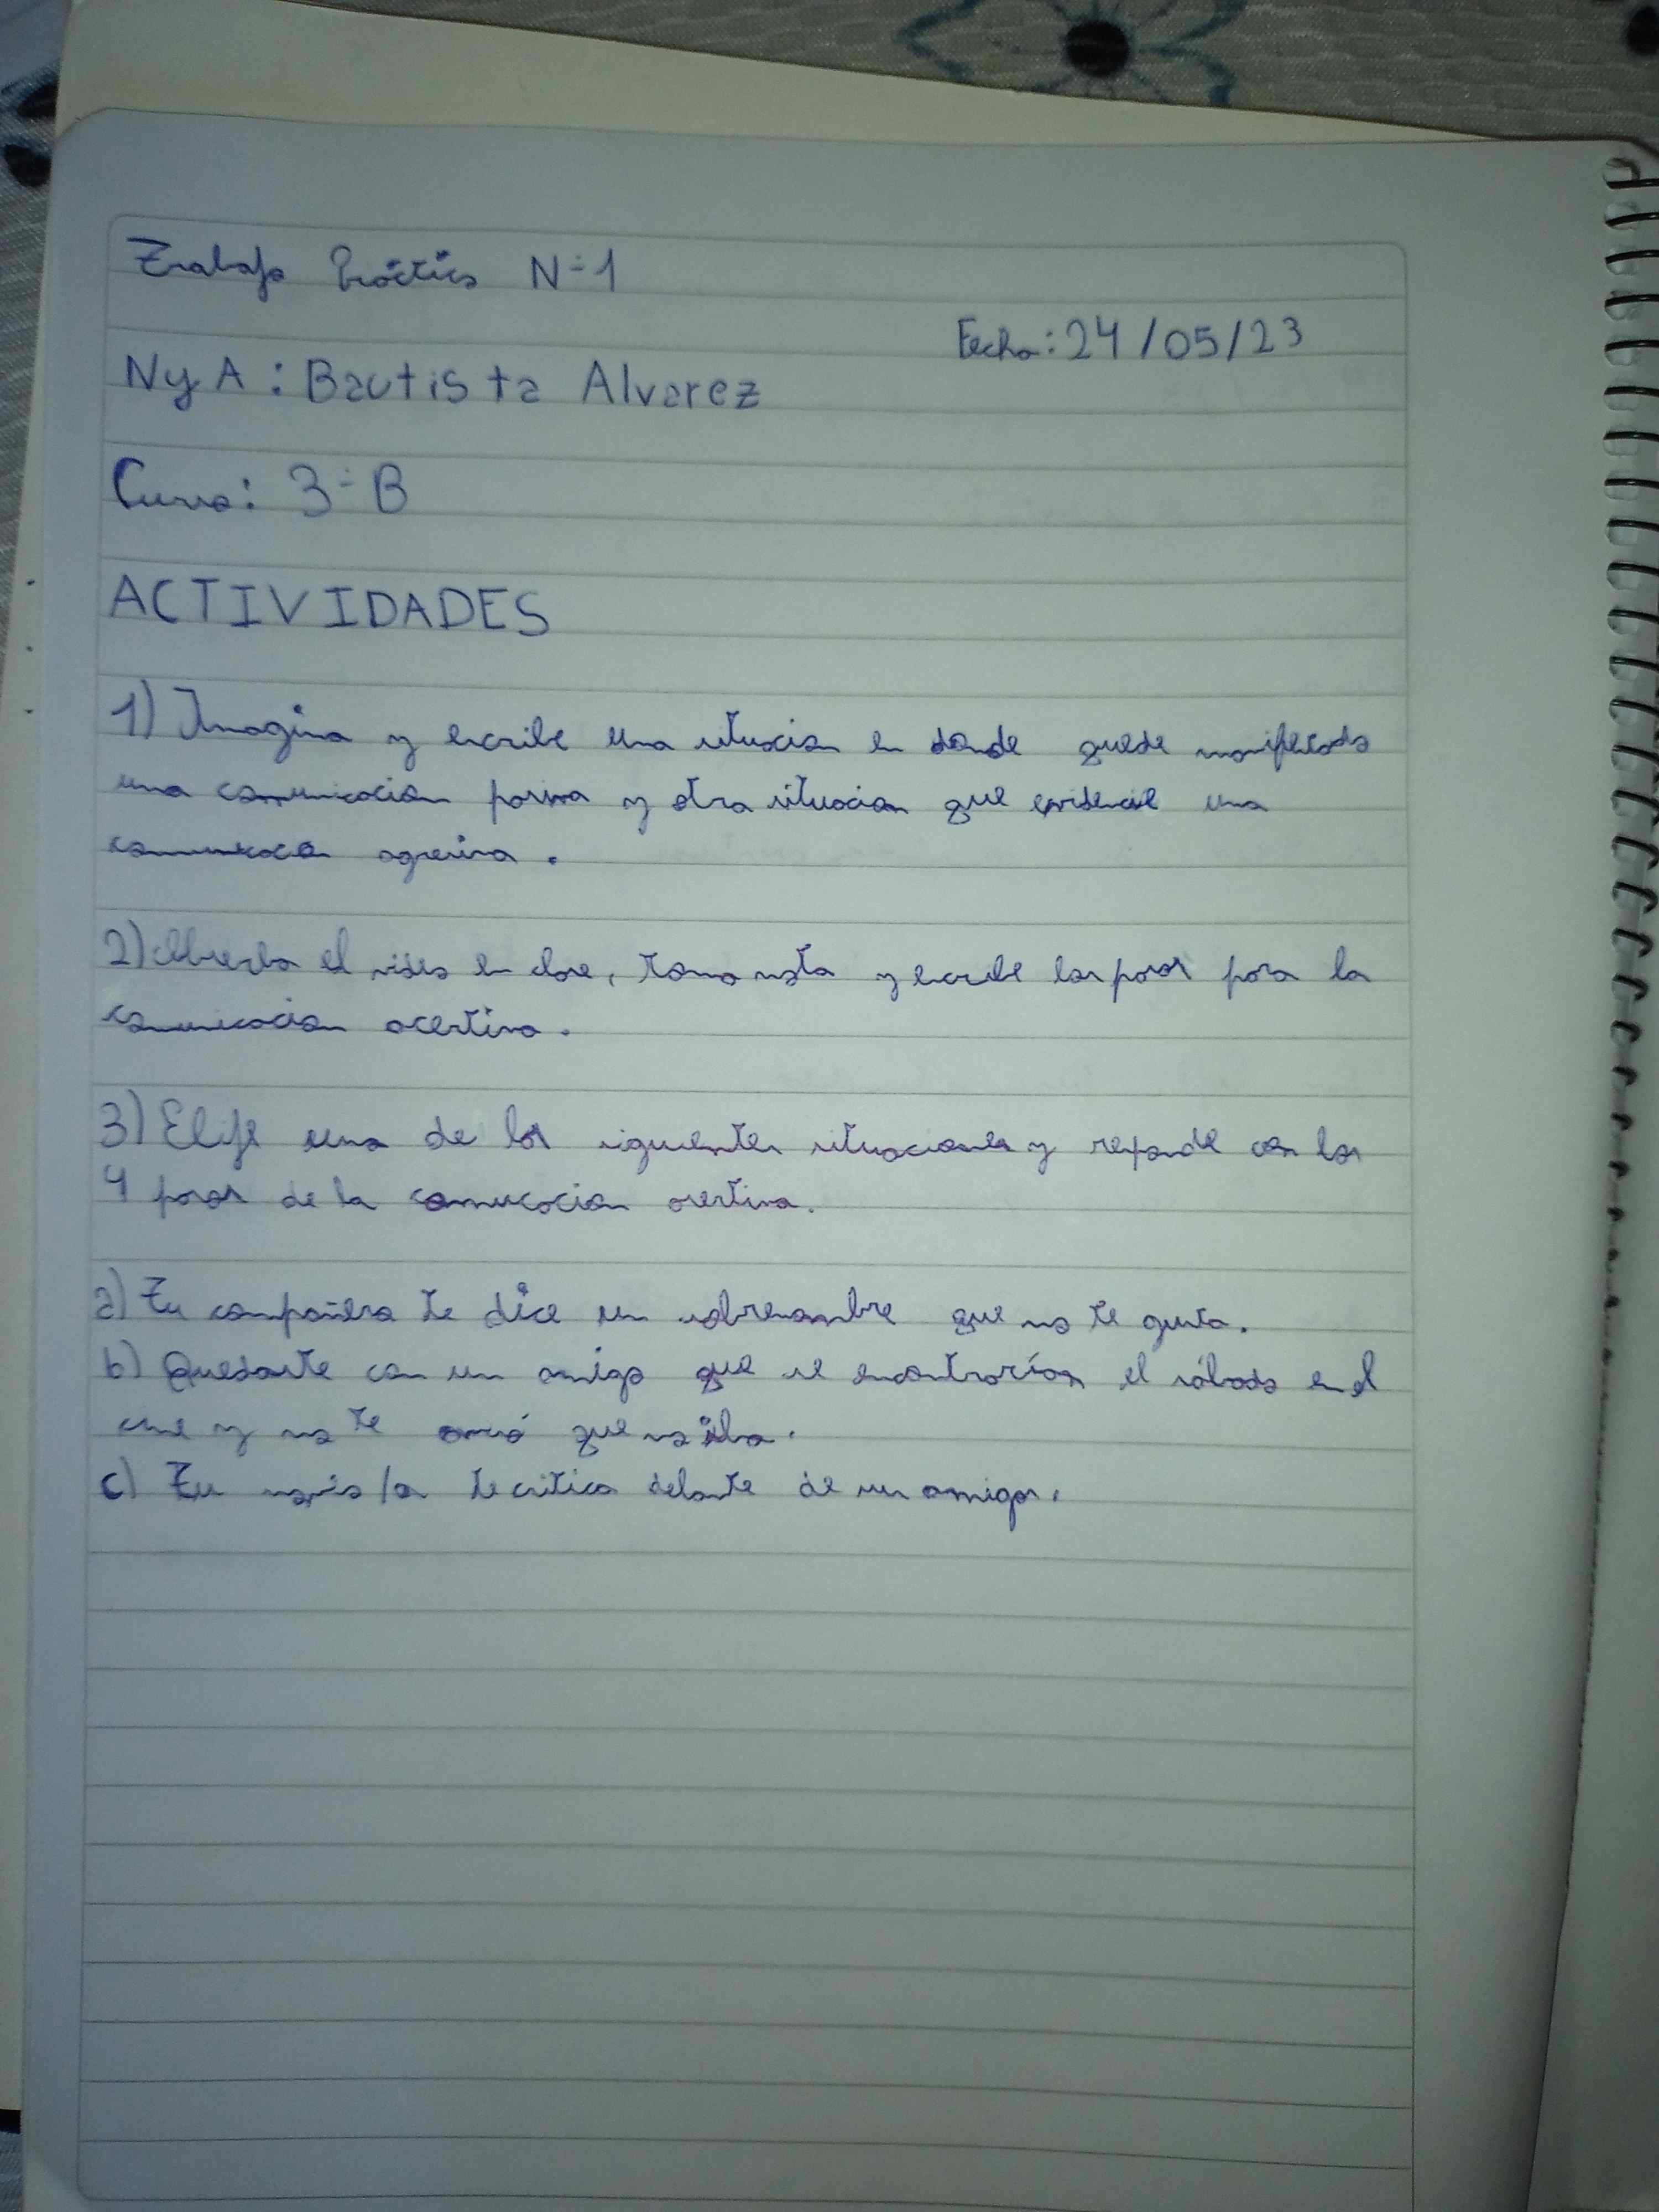 Trabajo Práctico N°1
Fecha: 24/05/23
NyA: Bautista Alvarez
Curso: 3°B
ACTIVIDADES
1) Imagina y escribe una situacion en donde quede manifestada
una comunicacion pasiva y otra situacion que evidencie una
comunicacion agresiva.
2) Observa el video en clase, toma nota y escribe los pasos para la
comunicacion acertiva.
3) Elije una de las siguientes situaciones y responde con los
4 pasos de la comunicacion asertiva.
a) Tu compañero te dice un sobrenombre que no te gusta.
b) Quedaste con un amigo que se encontrarían el sábado en el
cine y no te avisó que no iba.
c) Tu novio/a te critica delante de sus amigos.